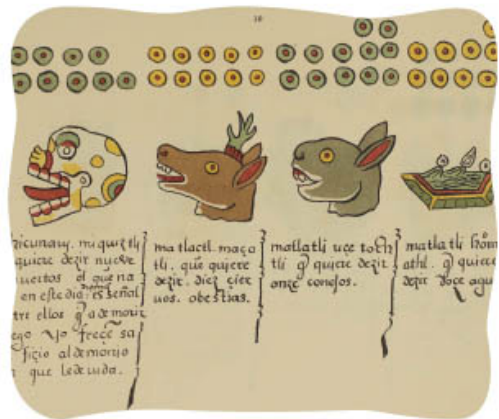 10
hicunavy. miquiztli
quiere dezir nueve
muertos el que na
en este dia. es señal
tre ellos q̄ a de morir
ego no freçe sa
fiçio al demonio
que le de vida.
matlactl. maça
tli. que quiere
dezir. diez çier
uos. o bestias.
matlatli uçe toch
tli q̄ quiere dezir
onze conejos.
matlatli hom
athl. q̄ quiere
dezir doze agu